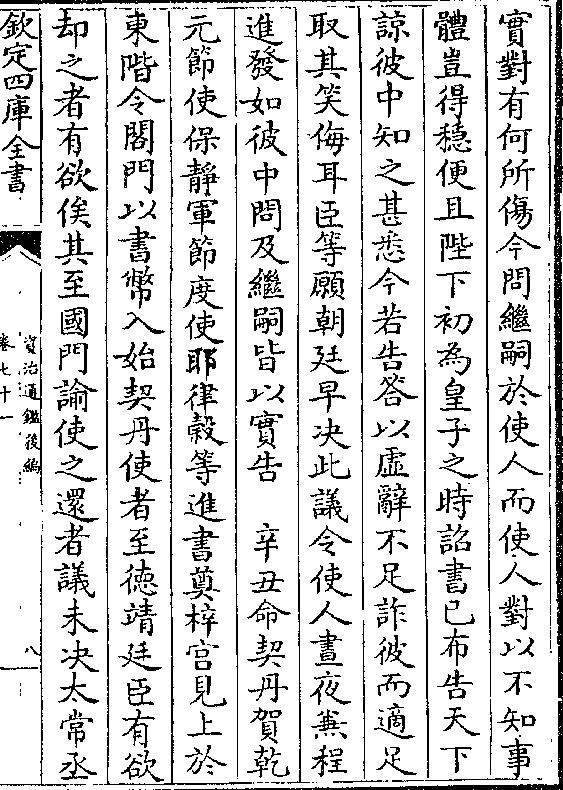 實對有何所傷今問繼嗣於使人而使人對以不知事
體豈得穏便且陛下初為皇子之時詔書已布告天下
諒彼中知之甚悉今若告答以虛辭不足詐彼而適足
取其笑侮耳臣等願朝廷早决此議令使人晝夜兼程
進發如彼中問及繼嗣皆以實告　辛丑命契丹賀乾
元節使保靜軍節度使耶律穀等進書奠梓宮見上於
東階令閤門以書幣入始契丹使者至徳靖廷臣有欲
却之者有欲俟其至國門諭使之還者議未决太常丞
欽定四庫全書
資治通鑑後編
卷七十一
八